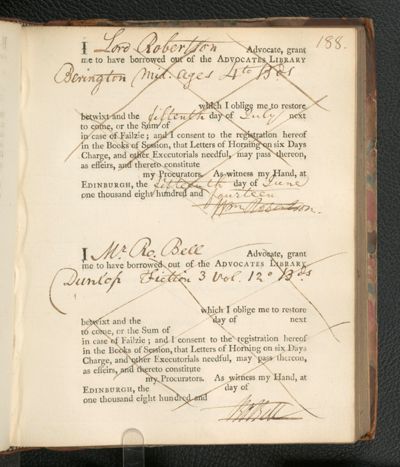 188.
I Lord Robertson Advocate, grant
me to have borrowed out of the ADVOCATES LIBRARY
Berington Mid. Ages 4to Bds
which I oblige me to restore
betwixt and the fifteenth day of July next
to come, or the Sum of
in case of Failzie; and I consent to the registration hereof
in the Books of Session, that Letters of Horning on six Days
Charge, and other Executorials needful, may pass thereon,
as effeirs, and thereto constitute
my Procurators. As witness my Hand, at
EDINBURGH, the day of June
one thousand eight hundred and fourteen
Wm Robertson.
I Mr. Ro. Bell Advocate, grant
me to have borrowed out of the ADVOCATES LIBRARY
Dunlop Fiction 3 Vol. 12o Bds
which I oblige me to restore
betwixt and the day of next
to come, or the Sum of
in case of Failzie; and I consent to the registration hereof
in the Books of Session, that Letters of Horning on six Days
Charge, and other Executorials needful, may pass thereon,
as effeirs, and thereto constitute
my Procurators. As witness my Hand, at
EDINBURGH, the day of
one thousand eight hundred and
Ro Bell